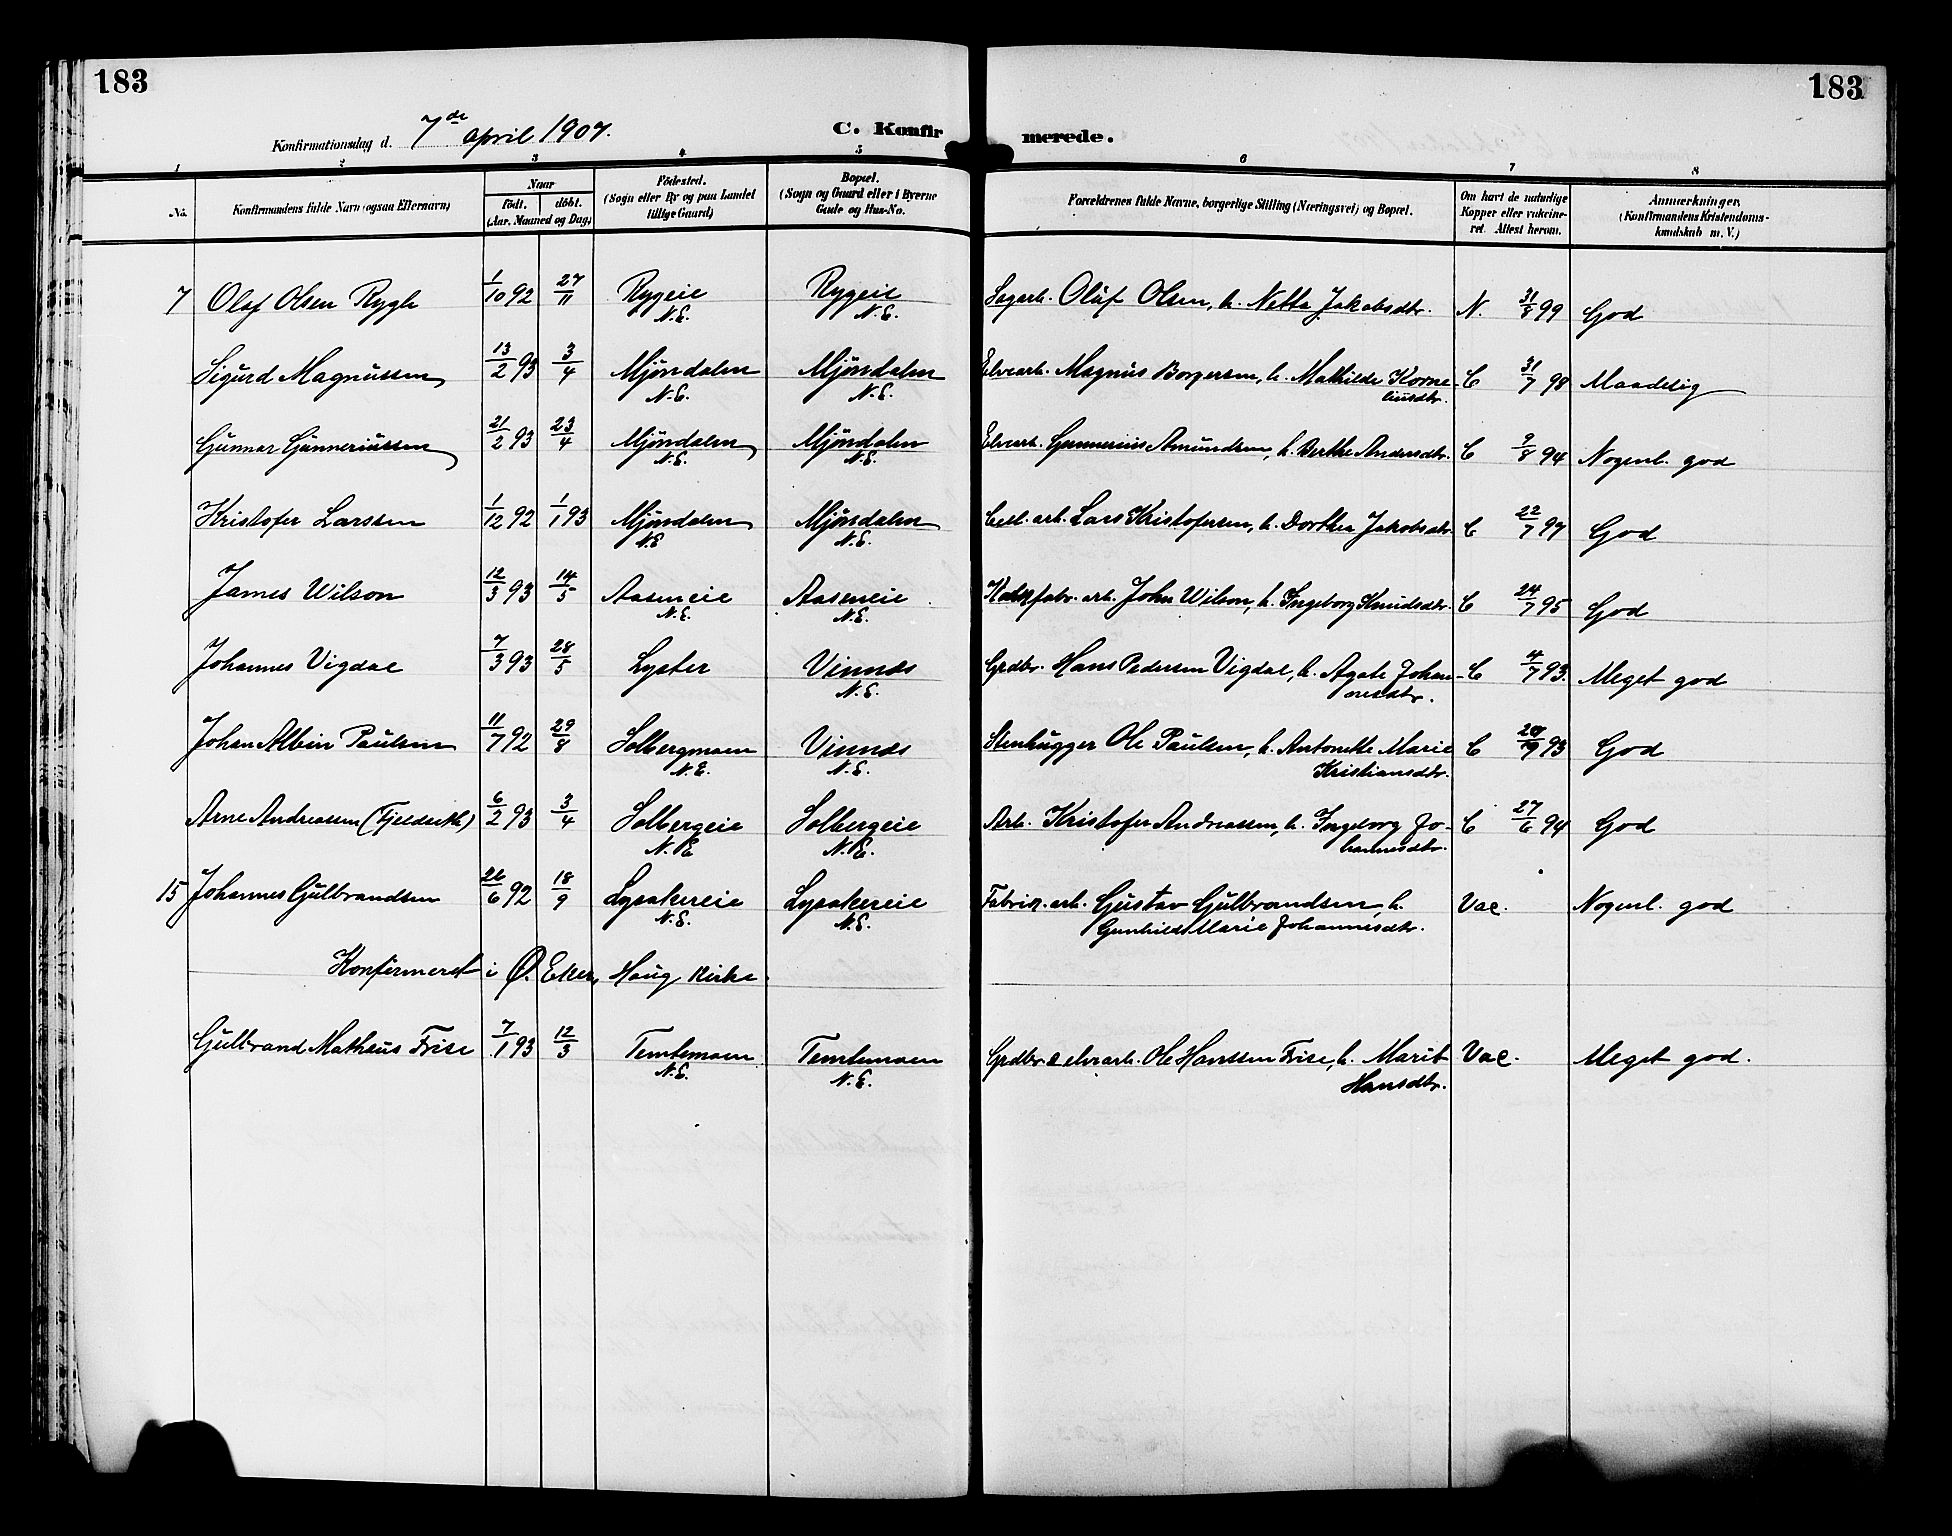 183
183
Konfirmationsdag d. 7de april 1907.
C. Konfirmerede.
1 2 3 4 5 6 7 8
No.
Konfirmandens fulde Navn (ogsaa Efternavn)
Naar
födt. döbt.
(Aar, Maaned og Dag)
Födested.
(Sogn eller By og paa Landet
tillige Gaard)
Bopæl.
(Sogn og Gaard eller i Byerne
Gade og Hus-No.
Forældrenes fulde Navne, borgerlige Stilling (Næringsvei) og Bopæl.
Om havt de naturlige
Kopper eller vakcine-
ret. Attest herom.
Anmærkninger,
(Konfirmandens Kristendoms-
kundskab m. V.)
7 Olaf Olsen Rygh 1/10 92 27/11 Rygeie N.E. Rygeie N.E. Sagarb. Oluf Olsen, h. Netta Jakobsdtr. N. 31/8 99 God
Sigurd Magnussen 13/2 93 3/4 Mjøndalen N.E. Mjøndalen N.E. Elvearb. Magnus Borgersen, h. Mathilde Korne-
liusdtr. C 31/7 98 Maadelig
Gunnar Gunneriussen 21/2 93 23/4 Mjøndalen N.E. Mjøndalen N.E. Elvearb. Gunnerius Amundsen, h. Berthe Andersdtr. C 9/8 94 Nogenl. god
Kristofer Larssen 1/12 92 1/1 93 Mjøndalen N.E. Mjøndalen N.E. Cell. arb. Lars Kristofersen, h. Dorthea Jakobsdtr. C 22/7 97 God
James Wilson 12/3 93 14/5 Aaseneie N.E. Aaseneie N.E. fabr. arb. John Wilson, h. Ingeborg Knudsdtr. C 24/7 95 God
Johannes Vigdal 7/3 93 28/5 Lyster Vinnæs N.E. Grdbr. Hans Pedersen Vigdal, h. Agate Johan-
nesdtr. C 4/7 93. Meget god
Johan Albin Paulsen 11/7 92 29/8 Solbergmoen N.E. Vinnæs N.E. Stenhugger Ole Paulsen, h. Antonette Marie
Kristiansdtr. C 93 God
Arne Andreassen (Fjeldseth) 6/2 93 3/4 Solbergeie N.E. Solbergeie N.E. Arb. Kristofer Andreassen, h. Ingeborg Jo-
hannesdtr. C 27/6 94 God
15 Johannes Gulbrandsen 26/6 92 18/9 Lysakereie N.E. Lysakereie N.E. Fabrik. arb. Gustav Gulbrandsen, h.
Gunhild Marie Johannesdtr. Vac. Nogenl. god
Konfirmeret i Ø. Eker, Haug Kirke.
Gulbrand Mathæus Frise 7/1 93 12/3 Temtemoen N.E. Temtemoen N.E. Grdbr. & elvearb. Ole Hanssen Frise, h. Marit
Hansdtr. Vac. Meget god.